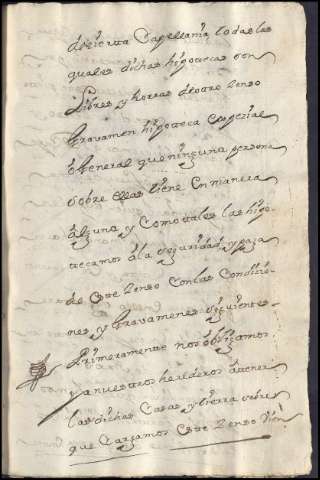 de cierta Capellania, todas las
quales dichas hipotecas son
Libres, y horras de otro Censo
Gravamen hipoteca Especial
o General que ninguna persona
sobre ellas tiene En manera
alguna, y Como tales las hipo-
tecamos á la seguridad, y paga
de Este Censo Con las Condicio-
nes, y Gravamenes siguientes-
Primeramente nos obligamos
y a nuestros herederos á tener
las dichas Casas, y tierra sobre
que Cargamos Este Censo Vien